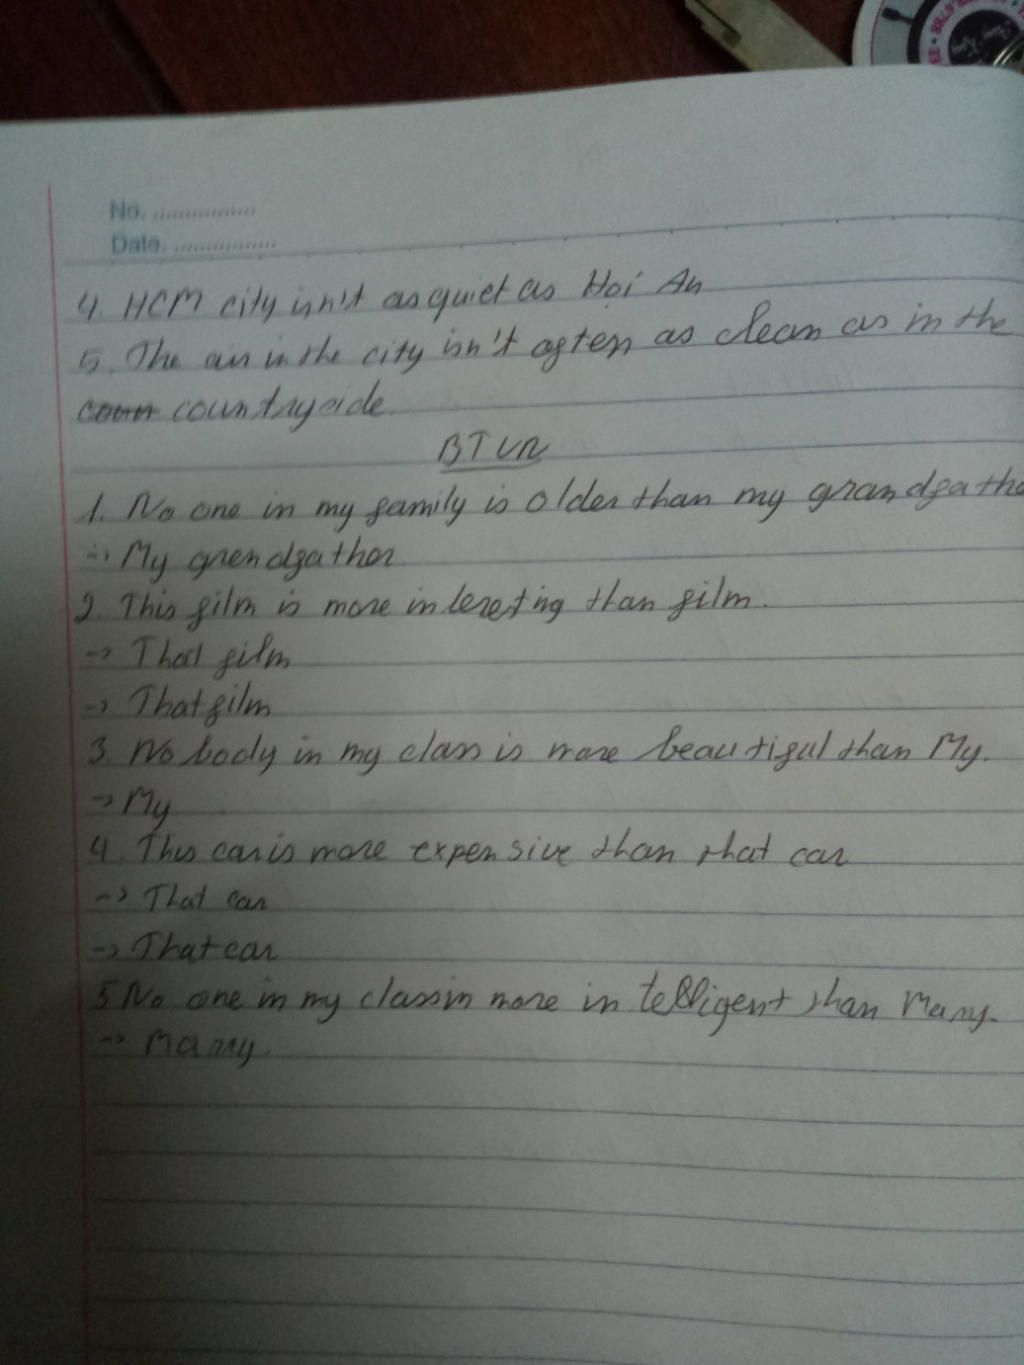 No. ...............
Date. ...............
4. HCM city isn't as quiet as Hoi An
5. The air in the city isn't often as clean as in the
coun countryside.
BTVN
1. No one in my family is older than my grandfathe
-> My grendfather
2. This film is more interesting than film.
-> That film
-> That film
3. No body in my class is more beautiful than My.
-> My
4. This car is more expensive than that car
-> That car
-> That car
5 No one in my class in more intelligent than Mary.
-> Mary